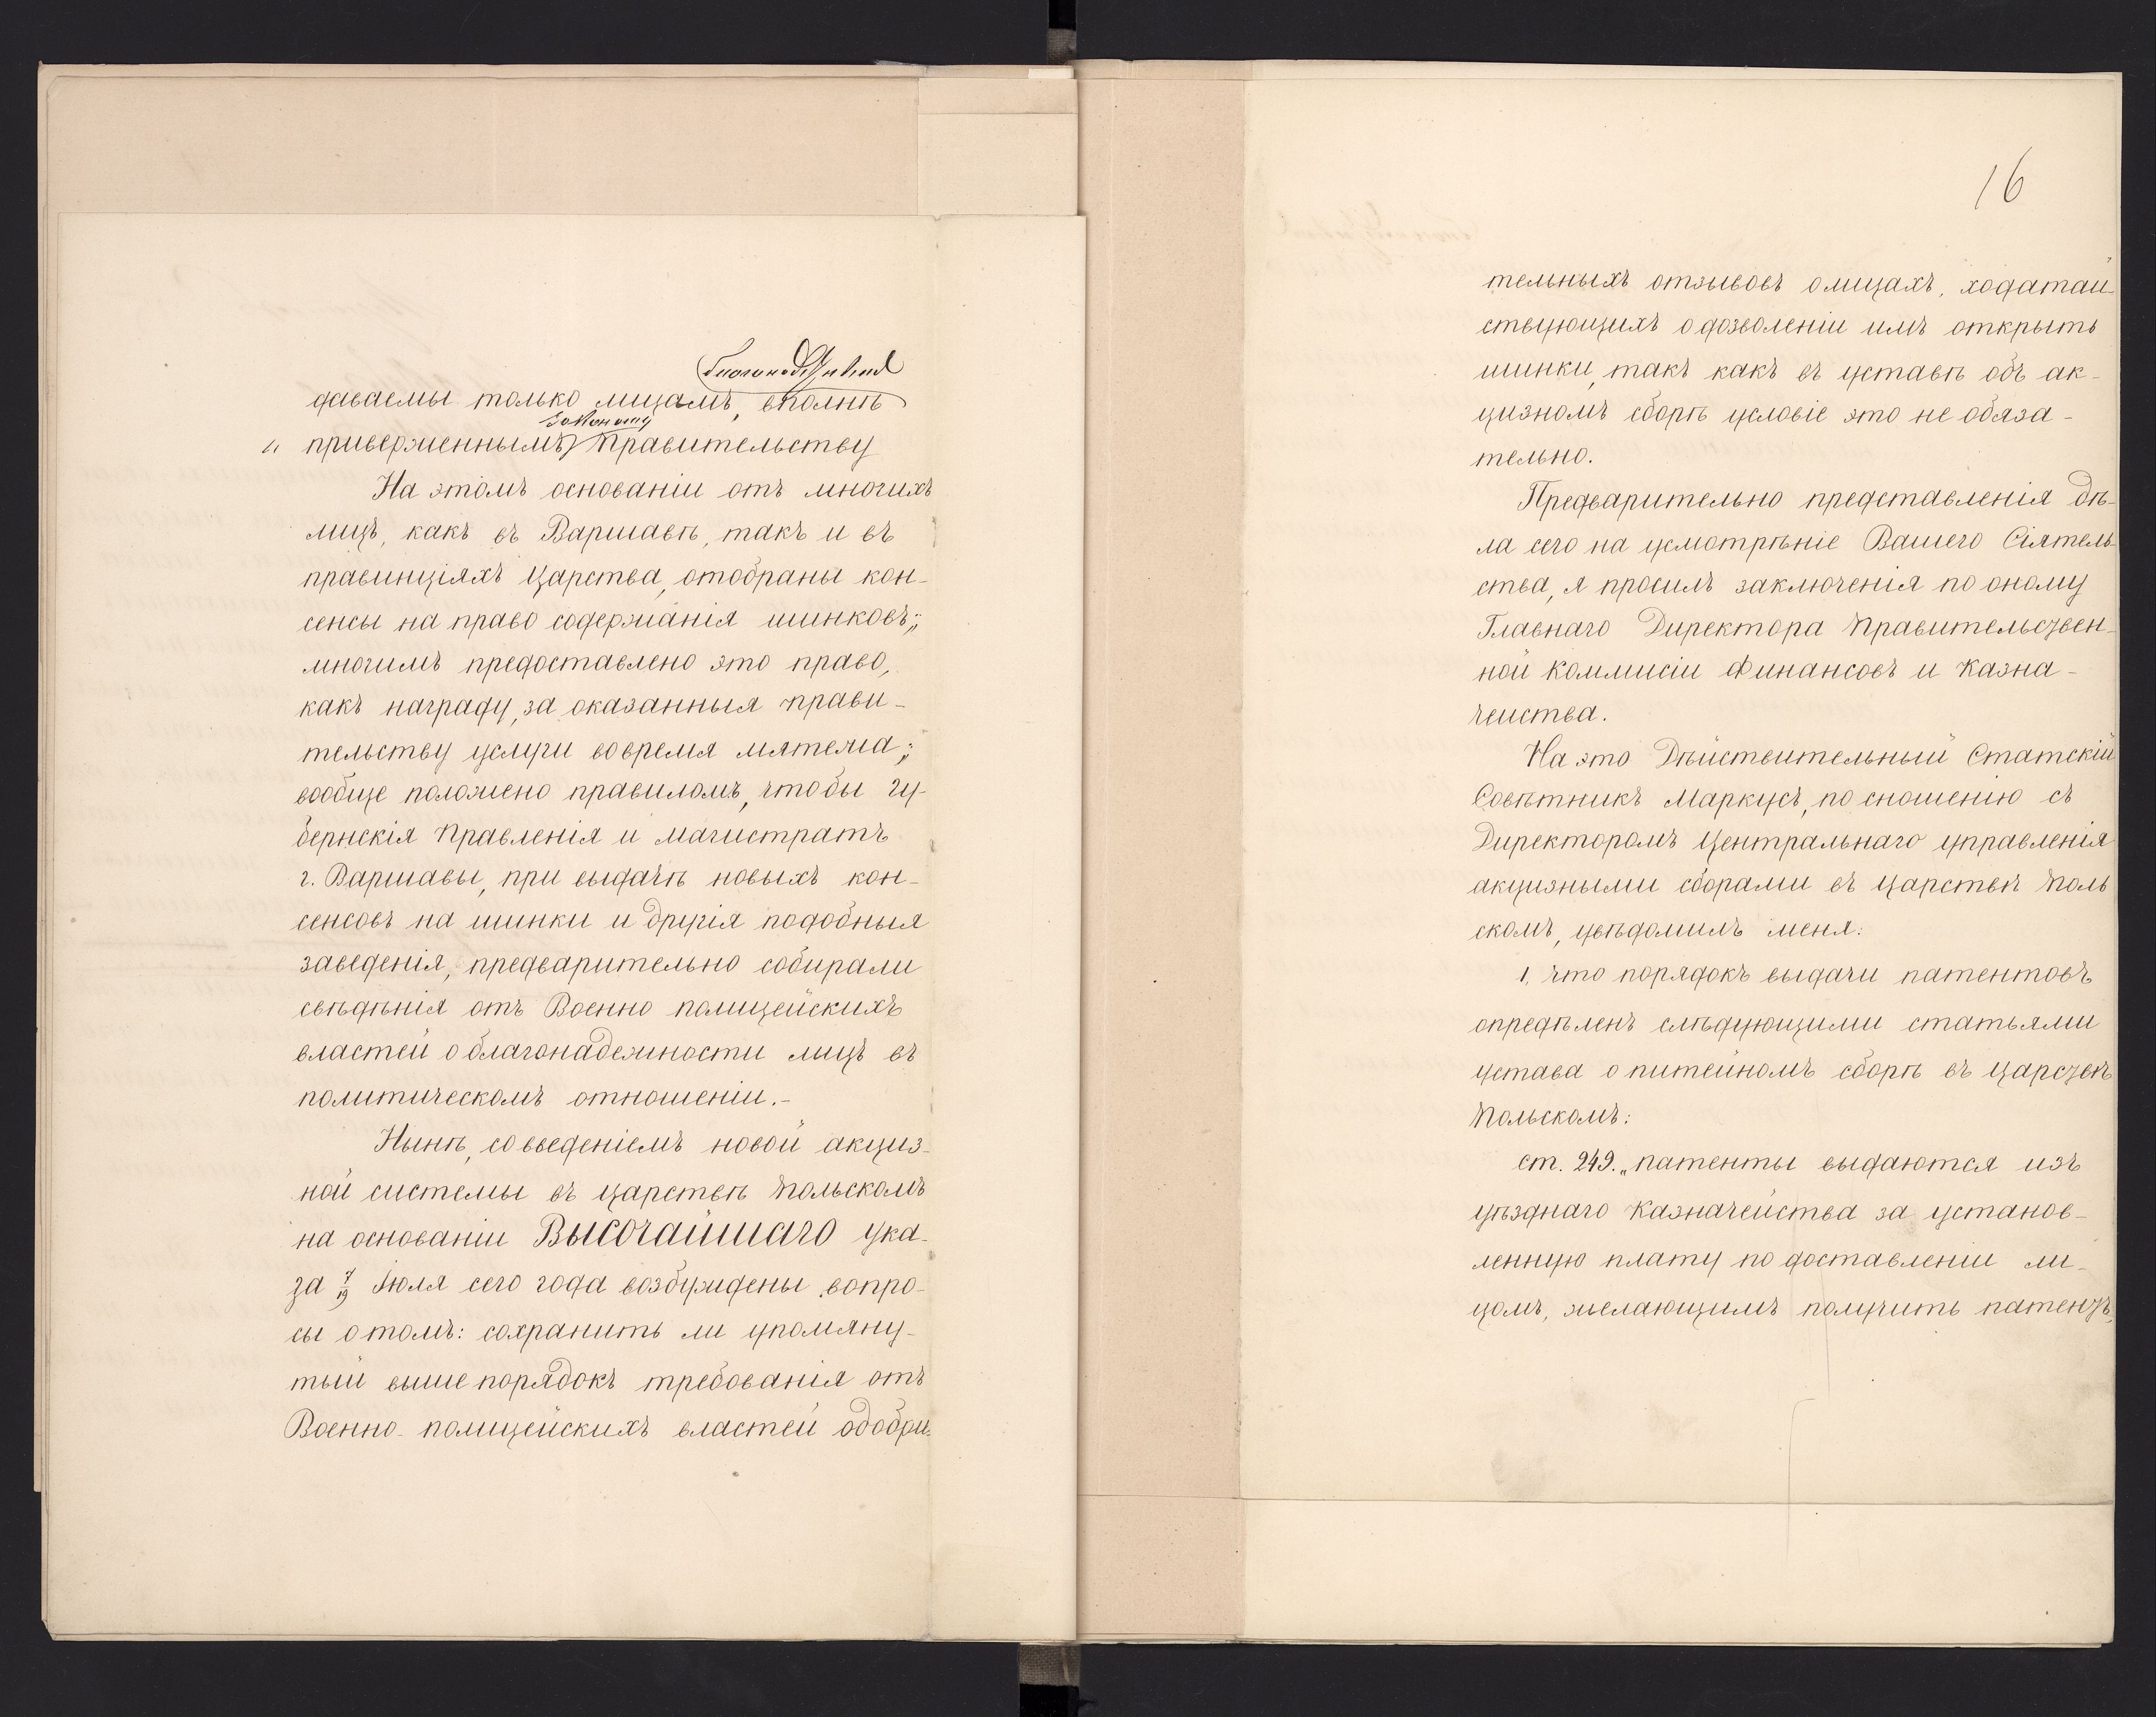 даваемы только лицамъ, вполнѣ
законному
и приверженнымъ Правительству
На этомъ основаніи отъ многихъ
лицъ, какъ въ Варшавѣ, такъ и въ
правинціяхъ Царства, отобраны кон-
сенсы на право содержанія шинковъ;
многимъ предоставлено это право,
какъ награду, за оказанныя прави-
тельству услуги во время мятежа;
вообще положено правиломъ, чтобы гу-
бернскія Правленія и магистратъ
г. Варшавы, при выдачѣ новыхъ кон-
сенсовъ на шинки и другія подобныя
заведенія, предварительно собирали
свѣдѣнія отъ Военно полицейскихъ
властей о благонадежности лицъ въ
политическомъ отношеніи.-
Нынѣ, со введеніемъ новой акциз-
ной системы въ Царствѣ Польскомъ
на основаніи Высочайшаго Ука-
за 7/19 Іюля сего года возбуждены вопро-
сы о томъ: сохранить ли упомяну-
тый выше порядокъ требованія отъ
Военно-полицейскихъ властей одобри-
16
тельныхъ отзывовъ о лицахъ, ходатай-
ствующихъ о дозволеніи имъ открыть
шинки, такъ какъ въ уставѣ объ ак-
цизномъ сборѣ условіе это не обяза-
тельно.
Предварительно представленія дѣ-
ла сего на усмотрѣніе Вашего Сіятель-
ства, я просилъ заключенія по оному
Главнаго Директора Правительствен-
ной Коммисіи Финансовъ и Казна-
чейства.
На это Дѣйствительный Статскій
Совѣтникъ Маркусъ, по сношенію съ
Директоромъ Центральнаго управленія
акцизными сборами въ Царствѣ Поль
скомъ, увѣдомилъ меня:
1, что порядокъ выдачи патентовъ
опредѣленъ слѣдующими статьями
устава о питейномъ сборѣ въ Царствѣ
Польскомъ:
ст. 249. „патенты выдаются изъ
уѣзднаго Казначейства за установ-
ленную плату по доставленіи ли-
цомъ, желающимъ получить патентъ,